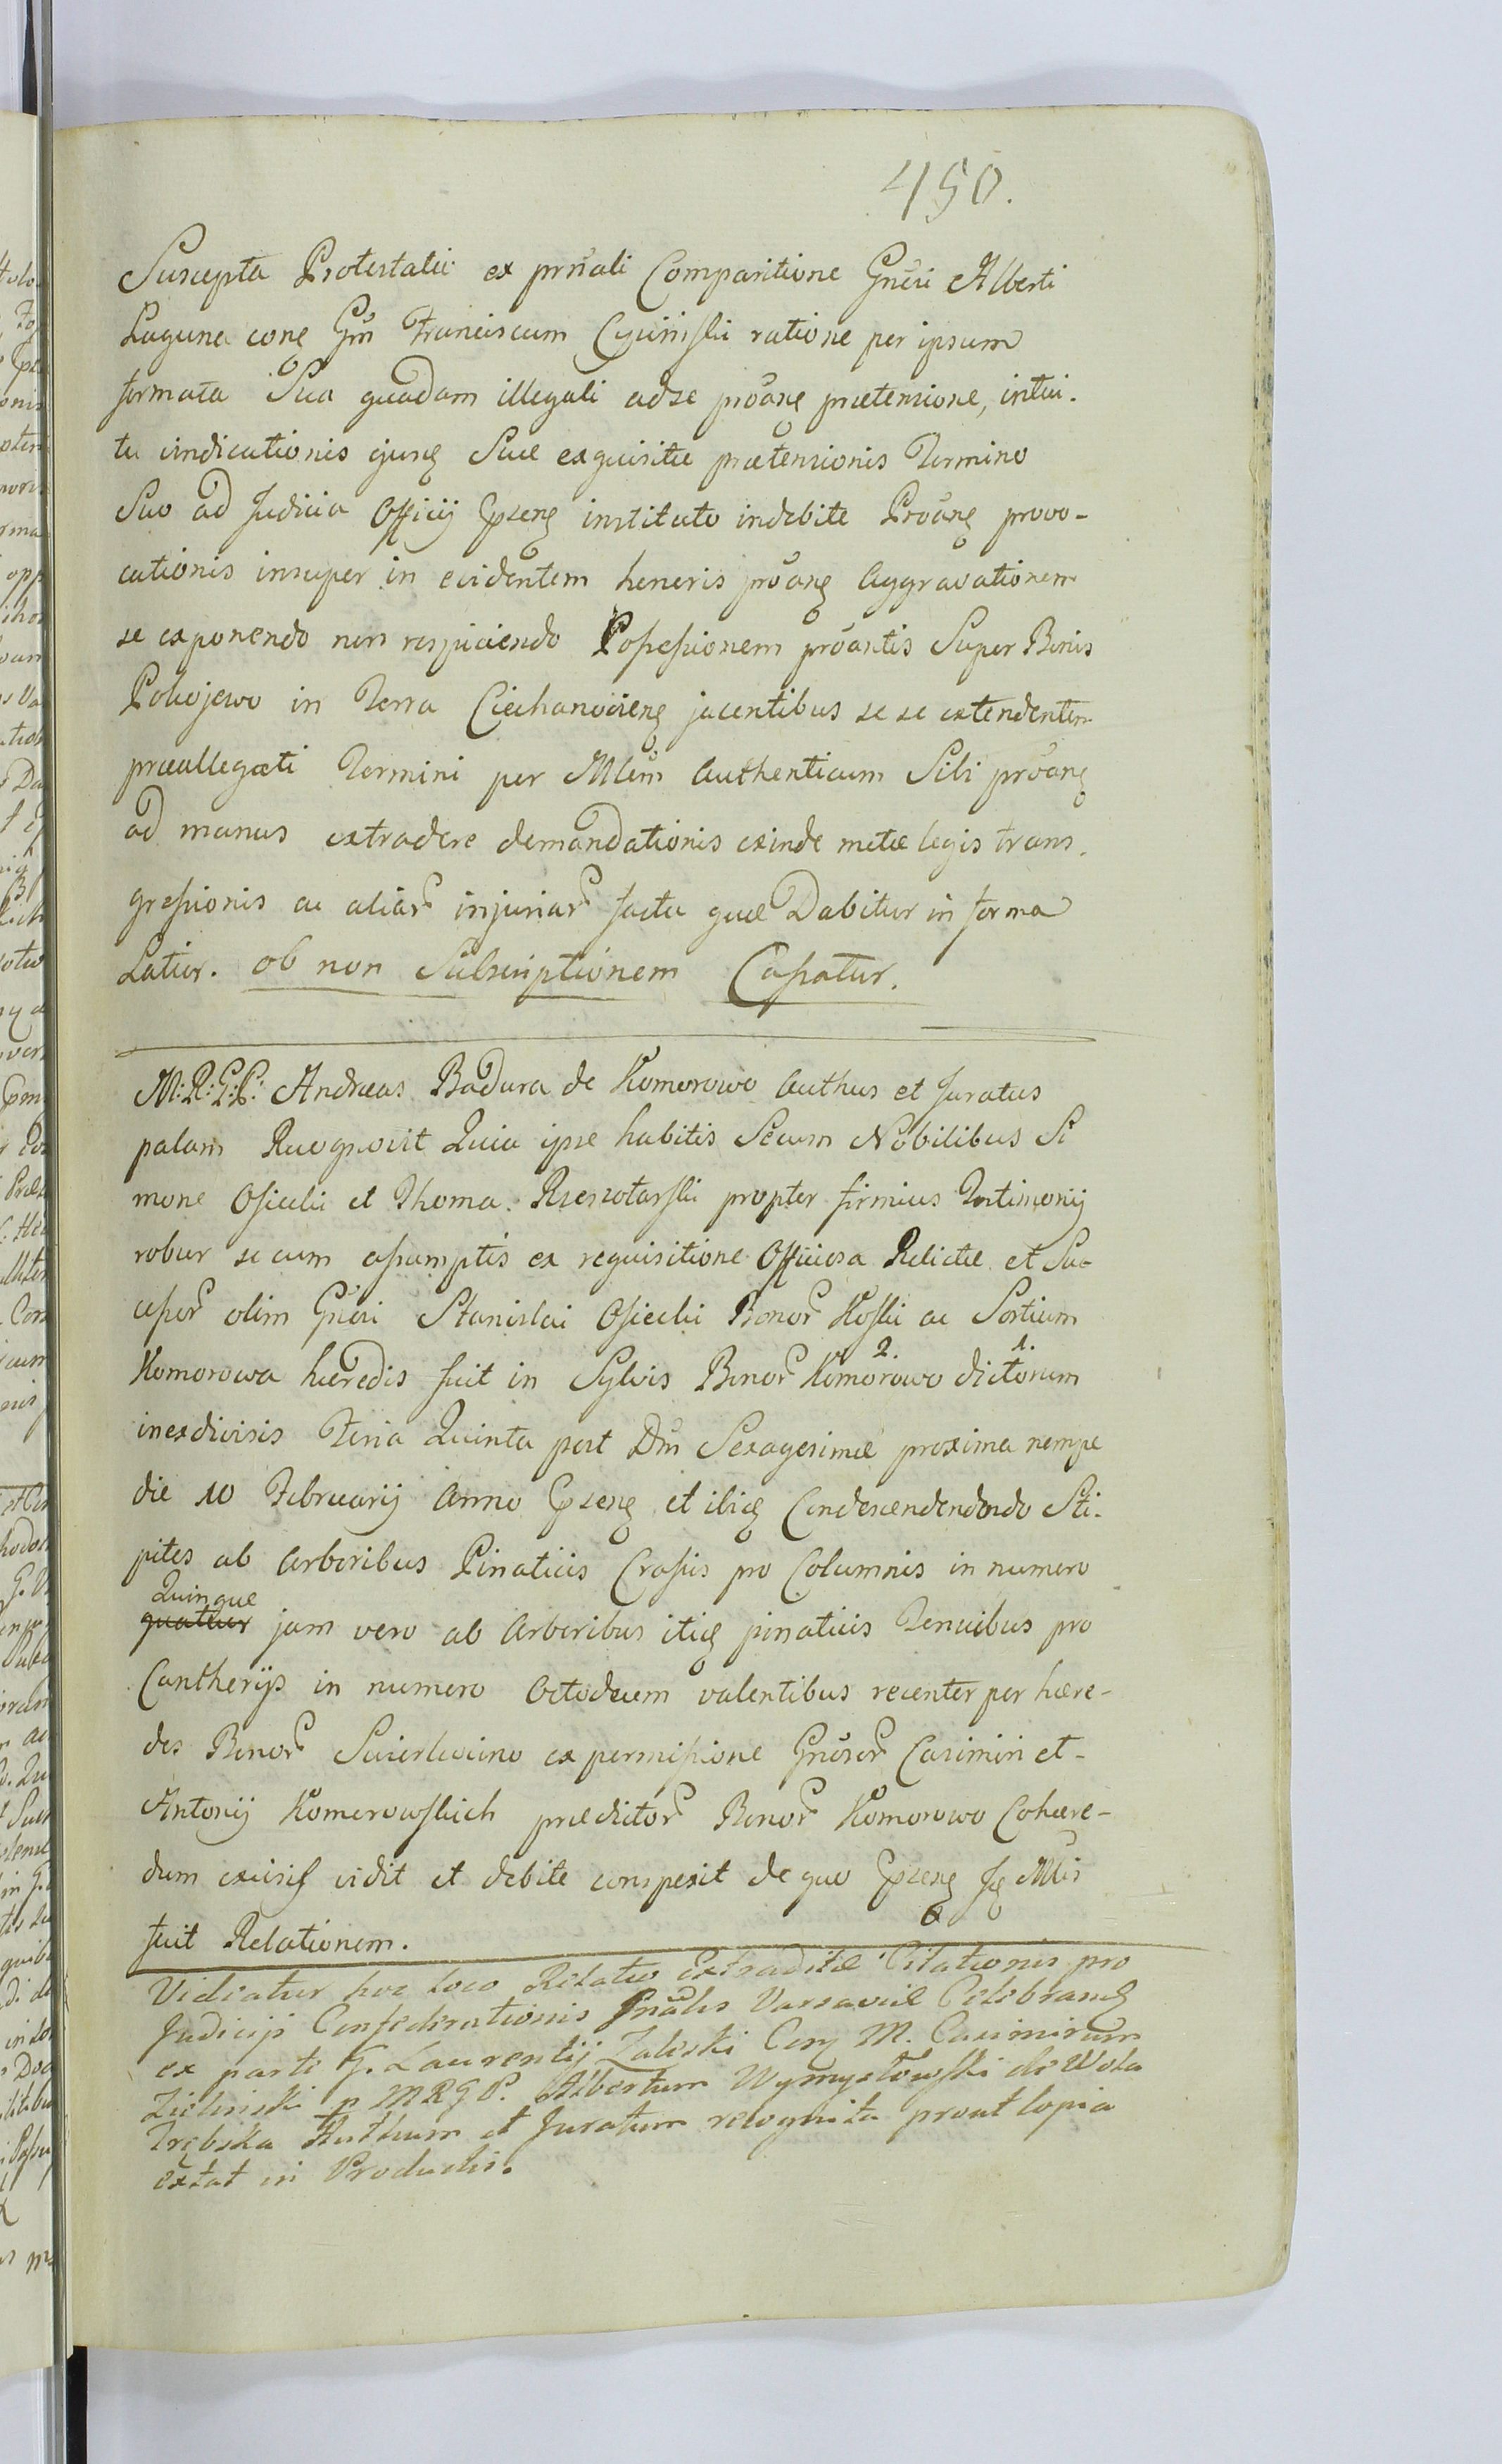 450.
Suscepta Protestatio ex prnali Comparitione Gnsi Alberti
Laguna cone Gm Franciscum Cyciński ratione per ipsum
formata Sua quadam illegali adse proang prætensione, intui-
tu vindicationis ejusq Suæ exquisitæ prætensionis Termino
Suo ad Judicia Officij Cpseng instituto indebite Proang provo-
cationis insuper in evidentem heneris proang Aggravationem
se exponendo non respiciendo Poßeßionem proantis Super Bonis
in Terra Ciechanovieng jacentibus se se extendentem
præallegati Termini per Mlem Authenticum Sibi proang
ad manus extradere demandationis exinde metæ legis trans-
greßionis ac aliar injuriar facta quæ Dabitur in forma
Latior. ob non Subscriptionem Caßatur.
M: R: G: P: Andreas Badura de Komorowo Authus et Juratus
palam Recognovit Quia ipse habitis Secum Nobilibus Si
mone Osiecki et Thoma Rzeszotarski propter firmius Testimonij
robur secum aßumptis ex requisitione Officiosa Relictæ et Suc
ceßor olim Gnsi Stanislai Osiecki Bonor Koski ac Sortium
Komorowa hæredis fuit in Sylvis Bonor Komorowo 2. dictorum 1.
inexdivisis Feria Quinta post Dm Sexagesimæ proxima nempe
die 10 Februarij Anno Cpseng et ibiq Condescendendendo Sti-
pites ab Arboribus Pinaticis Craßis pro Columnis in numero
Quinque
quatuor jam vero ab Arboribus itiq pinaticis Tenuibus pro
Cantherijs in numero Octodecim valentibus recenter per hære-
des Bonor ex permißione Gnsor Casimiri et
Antonij Komorowskich prædictor Bonor Komorowo Cohære-
dum excisis vidit et debite conspexit de quo Cpseng Jq Mlis
fecit Relationem.
Videatur hoc loco Relatio Extraditæ Citationis pro
Judicijs Confederationis Gnalis Varsaviæ Celebrand
ex parte G. Laurentij Zaleski Cerg M. Casimirum
Zieliński p MRGP. Albertum Wymysłowski de Wola
Trębska Authum et Juratum recognita prout Copia
extat in Productis.